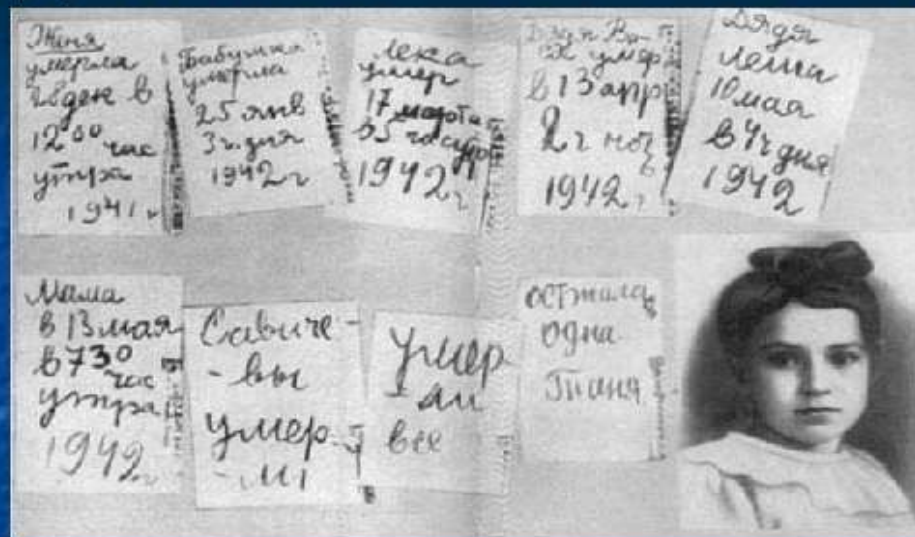 Женя
умерла
28 ден в
12 00 час
утра
1941 г
Бабушка
умерла
25 янв
3 ч. дня
1942 г
Лека
умер
17 марта
в 5 час утр
1942 г
Дядя Ва
ся умер
в 13 апр
2 ч ноч
1942 г
Дядя
Леша
10 мая
в 4 ч дня
1942
Мама
в 13 мая
в 7 30
час
утра
1942 г
Савиче-
-вы
умер
-ли
Умер
-ли
все
Осталась
одна
Таня